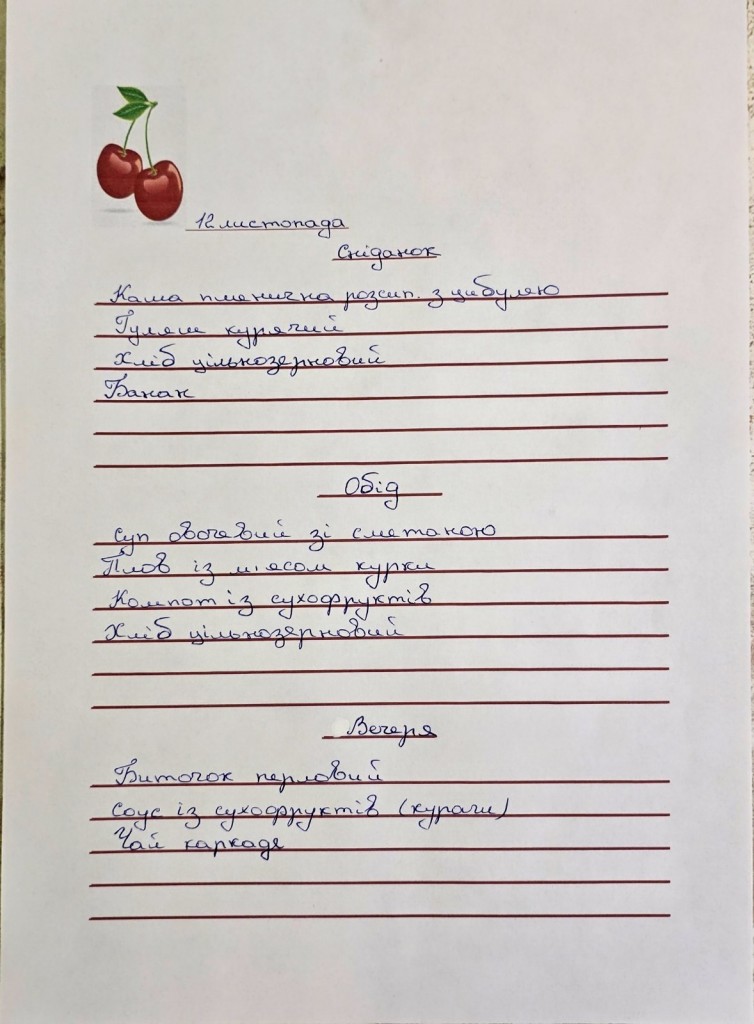 12 листопада
Сніданок
Каша пшенична розсип. з цибулею
Гуляш курячий
Хліб цільнозерновий
Банан
Обід
Суп овочевий зі сметаною
Плов із м'ясом курки
Компот із сухофруктів
Хліб цільнозерновий
Вечеря
Биточок перловий
Соус із сухофруктів (кураги)
Чай каркаде